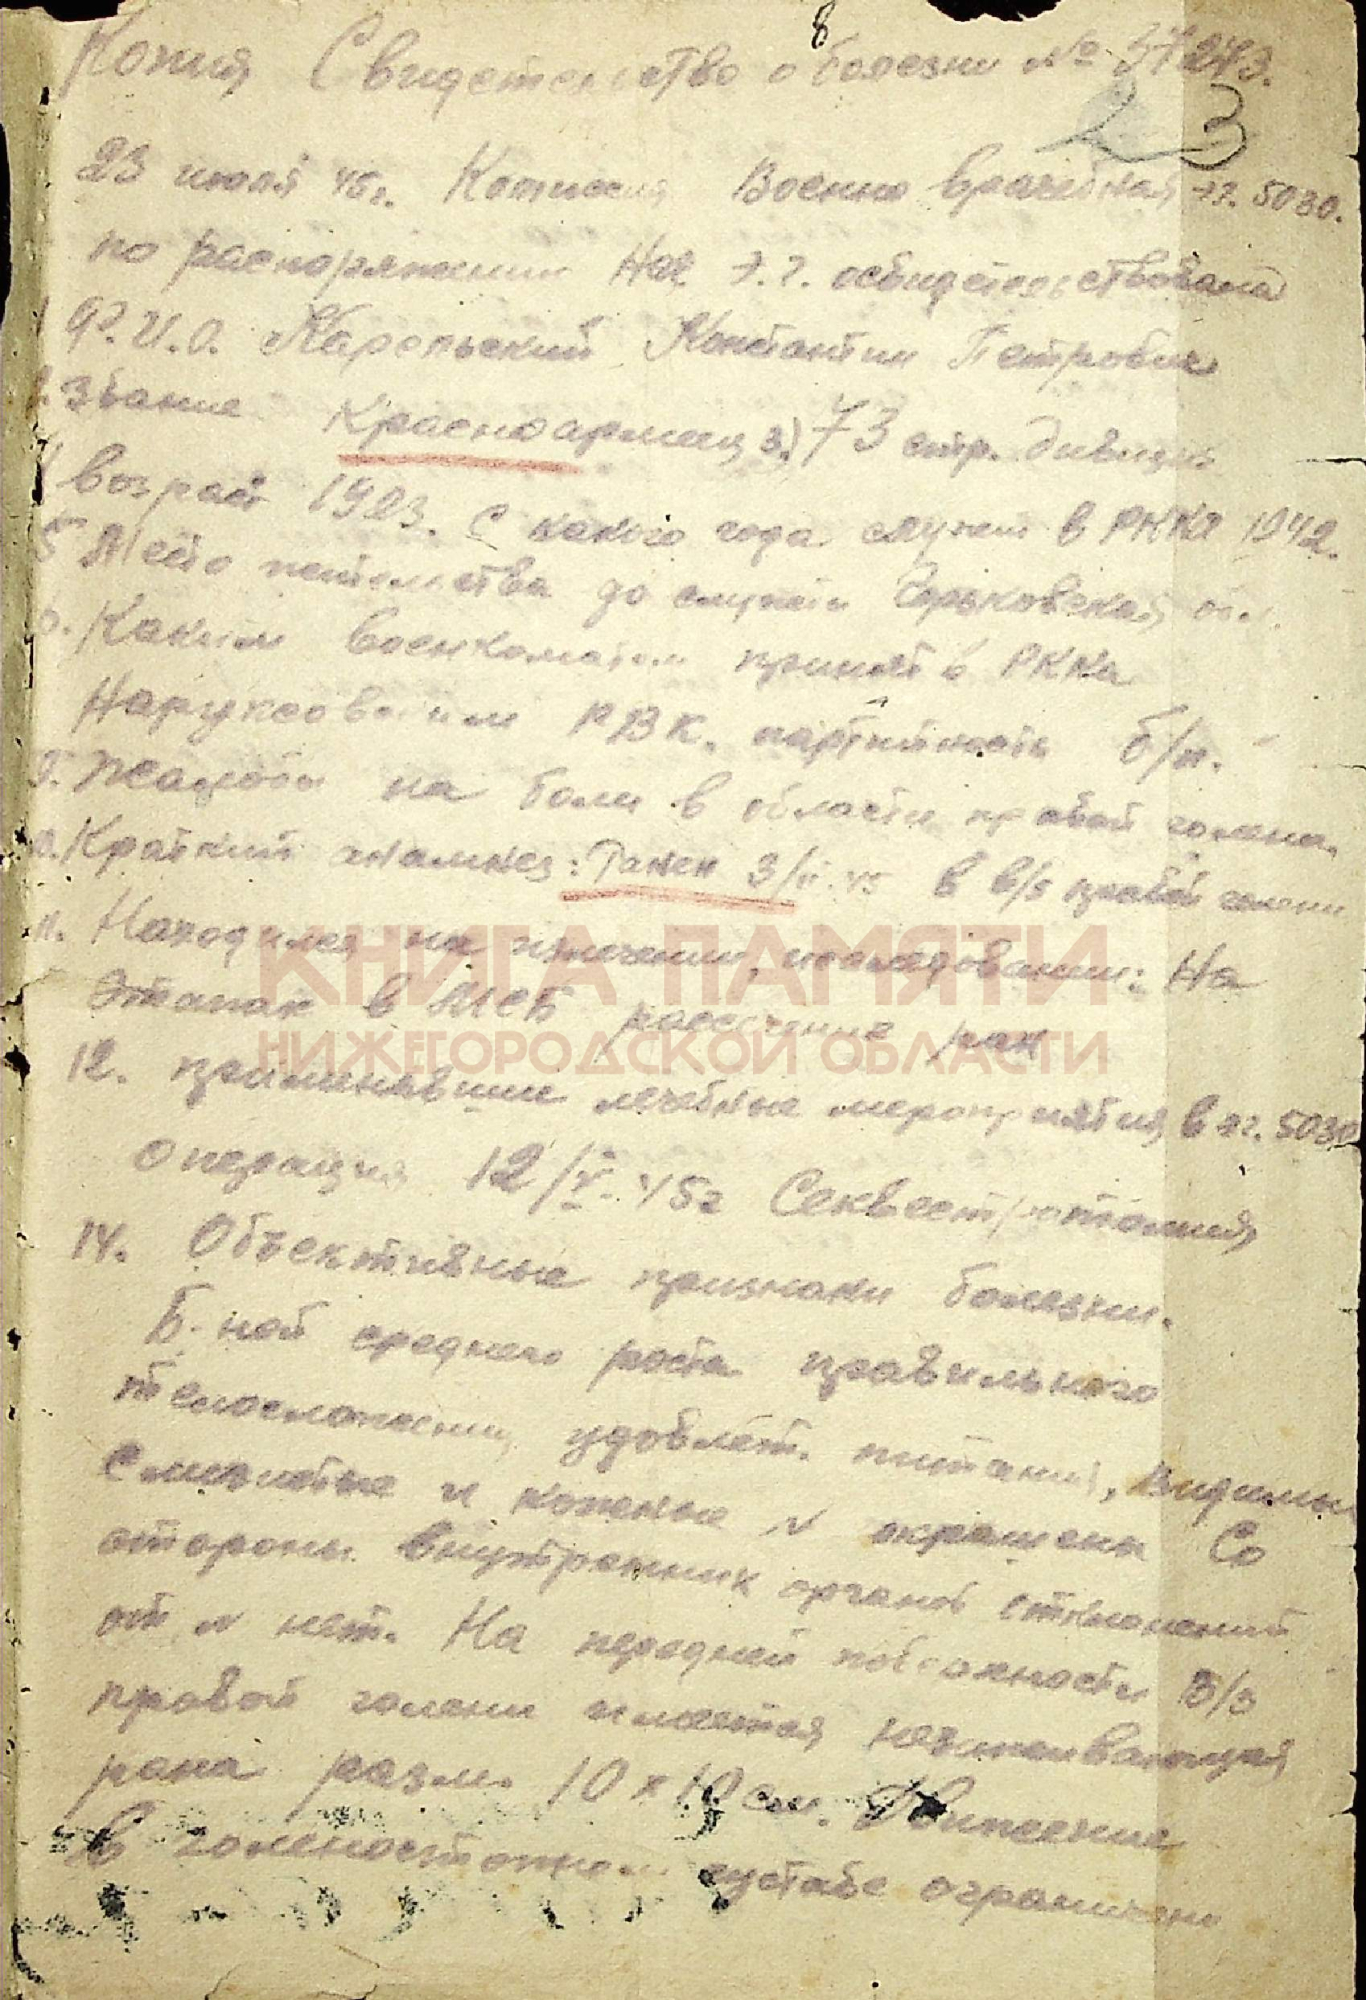 8
Копия Свидетельство о болезни № 37243.
23
23 июля 45г. Комиссия Военно врачебная эг. 5030.
по распоряжению Нач э.г. освидетельствована
1 Ф.И.О. Карельский Константин Петрович
2. Звание красноармеец 3.) 73 стр. дивизия
4 возраст 1923. С какого года служит в РККА 1942.
5 Место жительства до службы Горьковская обл.
6. Каким военкоматом принят в РККА
Наруксовским РВК. партийность б/п.
Жалобы на боли в области правой голени.
Краткий анамнез: Ранен 3/ 45 в в/з правой голени
11. Находился на излечении, исследовании: На
Этапах в МСБ рассечение ран
КНИГА ПАМЯТИ
НИЖЕГОРОДСКОЙ ОБЛАСТИ
12. применявшие лечебные мероприятия в эг. 5030
Операция 12/V. 45г Секвестротомия
14. Объективные признаки болезни.
Б-ной среднего роста правильного
телосложения, удовлет. питания, Видимы
слизистые и кожные N окрашены Со
стороны внутренних органов отклонений
от N нет. На передней поверхности в/з
правой голени имеется незаживающая
рана разм. 10 х 10 см. Движение
в голеностопном суставе ограничено